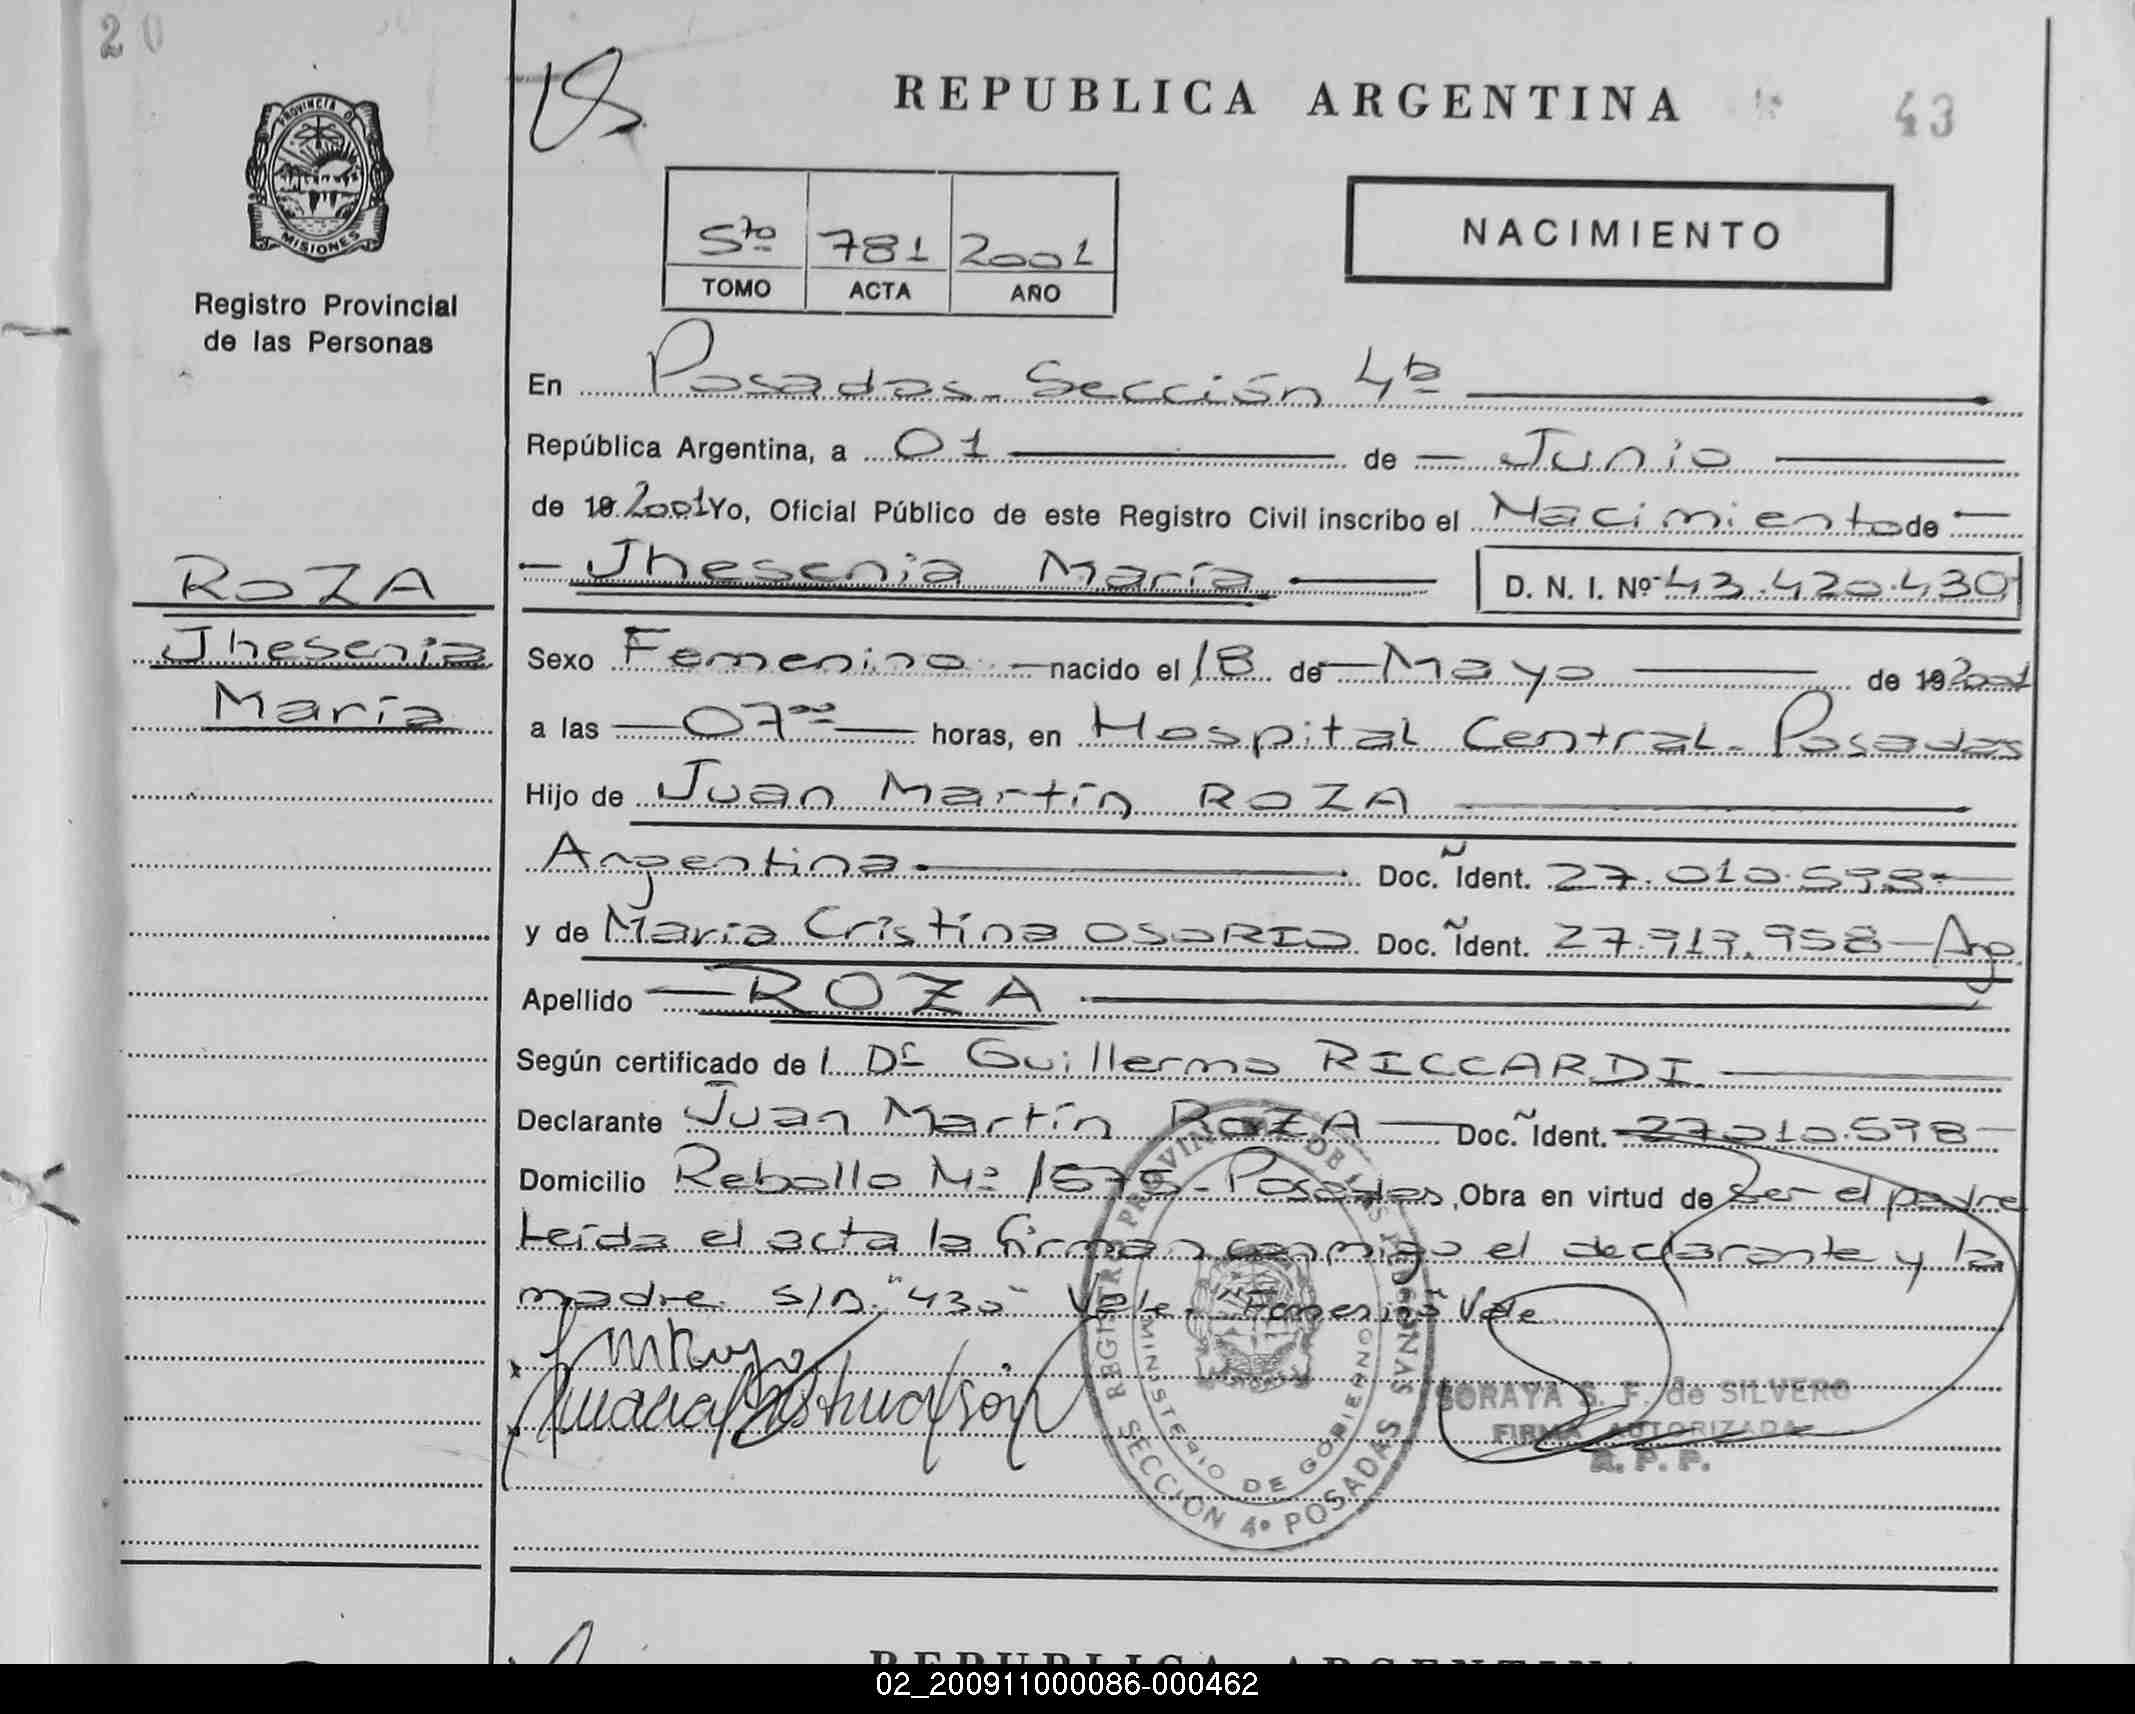 20
REPUBLICA ARGENTINA
43
PROVINCIA D
MISIONES
Registro Provincial
de las Personas
5to 781 2001
TOMO ACTA AÑO
NACIMIENTO
En Posadas - Sección 4ª
República Argentina, a 01 de Junio
de 19 2001 Yo, Oficial Público de este Registro Civil inscribo el Nacimiento de
Jhesenia María D. N. I. Nº 43.420.430
ROZA
Jhesenia
María
Sexo Femenino nacido el 18 de Mayo de 19 2001
a las 07ºº horas, en Hospital Central - Posadas
Hijo de Juan Martín ROZA
Argentina Doc. Ident. 27.010.598
y de María Cristina OSORIO Doc. Ident. 27.919.958 - Arg.
Apellido ROZA
Según certificado de l Dr Guillermo RICCARDI
Declarante Juan Martín ROZA Doc. Ident. 27010.598
Domicilio Rebollo Nº 1575 - Posadas, Obra en virtud de ser el padre
Leída el acta la firman conmigo el declarante y la
madre. S/B. "430" Vale. Vale
REGISTRO PROVINCIAL DE LAS PERSONAS
MINISTERIO DE GOBIERNO
SECCION 4º POSADAS
SORAYA S. F. de SILVERO
FIRMA AUTORIZADA
R. P. P.
REPUBLICA ARGENTINA
02_200911000086-000462